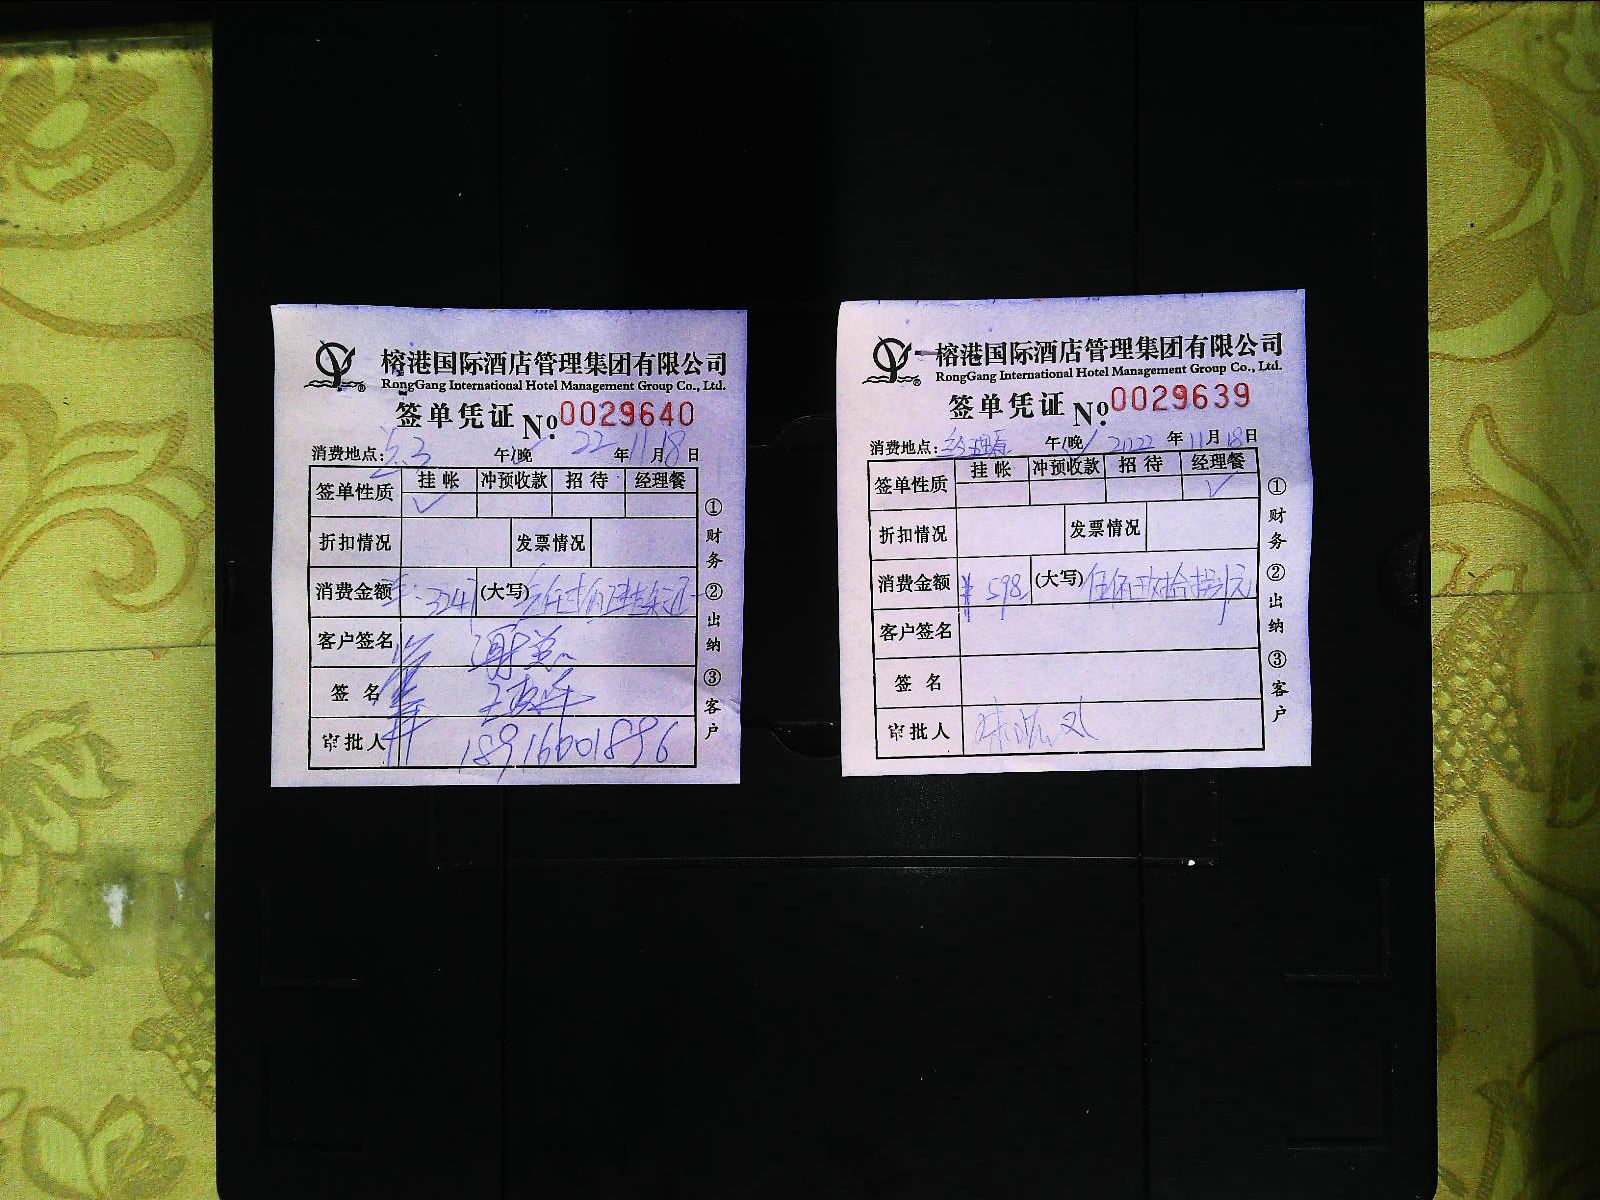 榕港国际酒店管理集团有限公司
RongGang International Hotel Management Group Co., Ltd.
签单凭证 No. 0029640
消费地点: 午/晚 22年11月18日
签单性质 挂帐 冲预收款 招待 经理餐
✓
折扣情况 发票情况
消费金额 (大写)
客户签名
签名
审批人 18916601896
①财务 ②出纳 ③客户
榕港国际酒店管理集团有限公司
RongGang International Hotel Management Group Co., Ltd.
签单凭证 No. 0029639
消费地点: 午/晚 2022年11月18日
签单性质 挂帐 冲预收款 招待 经理餐
✓
折扣情况 发票情况
消费金额 ¥598 (大写) 伍佰玖拾捌元
客户签名
签名
审批人
①财务 ②出纳 ③客户